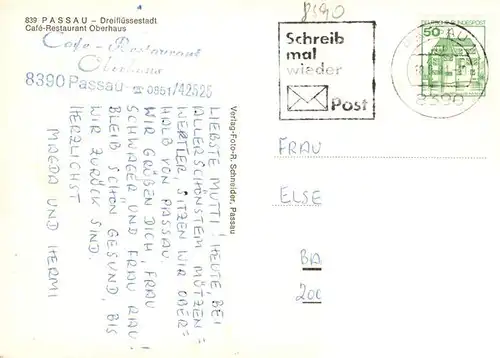 839 PASSAU – Dreiflüssestadt
Café-Restaurant Oberhaus
Cafe - Restaurant
Oberhaus
8390 Passau - ☎ 0851/42525
LIEBSTE MUTTI! HEUTE, BEI
ALLERSCHÖNSTEM MÜTZEN =
WERTLER, SITZEN WIR OBER=
HALB VON PASSAU.
WIR GRÜßEN DICH, FRAU
SCHWAGER UND FRAU RAU!
BLEIB SCHÖN GESUND, BIS
WIR ZURÜCK SIND.
HERZLICHST
MAGDA UND HERMI
Verlag-Foto-R. Schneider, Passau
8390
Schreib
mal
wieder
Post
DEUTSCHE BUNDESPOST
50
8390
FRAU
ELSE
BA
200